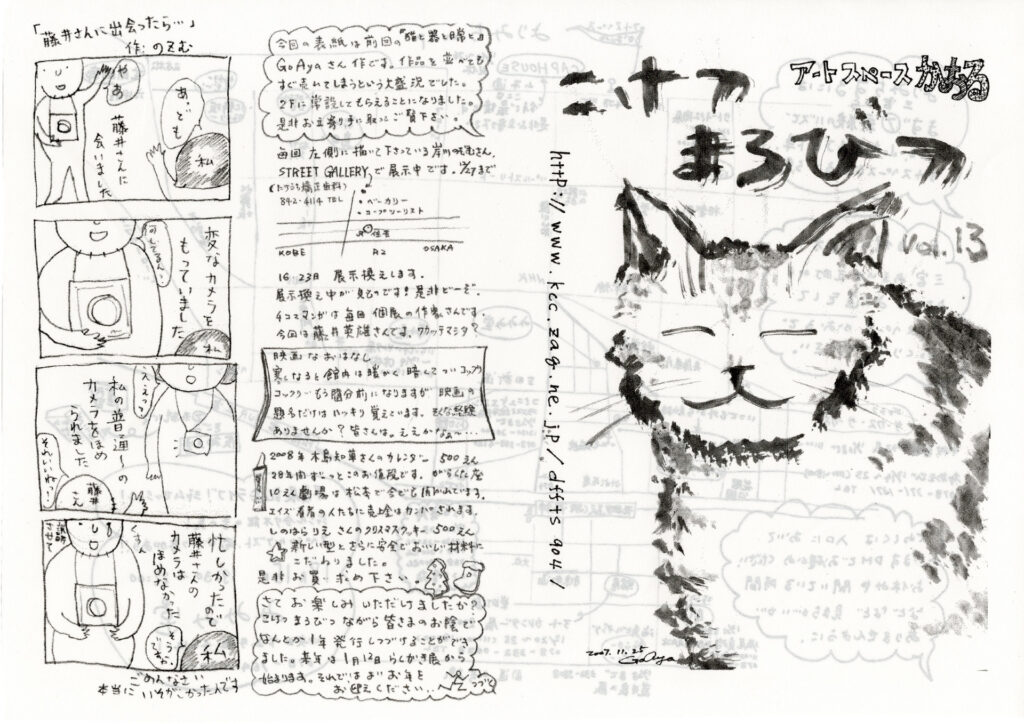 「藤井さんに出会ったら…」
作：のぞむ
やあ
あ、ども
私
藤井さんに
会いました
変なカメラを
もっていました
何してるん？
私
ええって
私の普通〜の
カメラをほめ
られました
それいいね！
藤井さん
忙しかったので
藤井さんの
カメラは
ほめなかった
私
ごめんなさい
本当にいそがしかったんです
今回の表紙は前回の『猫と器と日常と』
GoAyaさん作です。作品を並べても
すぐ売れてしまうという大盛況でした。
2Fに常設してもらえることになりました。
是非お立寄り手に取ってご覧下さい。
毎回左側に描いて下さっている岸川のぞむさん、
STREET GALLERYで展示中です。11/27まで
842-4114 TEL
・ベーカリー
JR住吉
KOBE R2 OSAKA
16 23日 展示換えします。
展示換え中が見ものです！是非どーぞ。
4コママンガは毎回個展の作家さんです。
今回は藤井英雄さんです。ワカッテマシタ？
映画なおはなし
寒くなると館内は暖かく、暗くてついコックリ
コックリ…もう随分前になりますが映画の
題名だけはハッキリ覚えています。そんな経験
ありませんか？皆さんは。ええかなぁ〜…
2008年 木島知草さんのカレンダー 500えん
28年間ずっとこのお値段です。がらくた座
しのはらりえさんのクリスマスクッキー 500えん
新しい型とさらに安全でおいしい材料に
こだわりました。
是非お買い求め下さい。
さてお楽しみいただけましたか？
こけつまろびつながら皆さまのお陰で
なんとか1年発行しつづけることができ
ました。来年は1月12日らくがき展から
始まります。それではよいお年を
お迎えください…
つづく
アートスペースかおる
こけつ
まろびつ
Vol.13
http://www.kcc.zaq.ne.jp/dffts904/
2007.11.25
GoAya